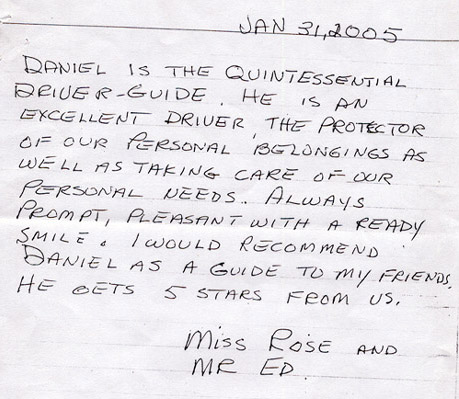 JAN 31, 2005
DANIEL IS THE QUINTESSENTIAL
DRIVER-GUIDE. HE IS AN
EXCELLENT DRIVER, THE PROTECTOR
OF OUR PERSONAL BELONGINGS AS
WELL AS TAKING CARE OF OUR
PERSONAL NEEDS. ALWAYS
PROMPT, PLEASANT WITH A READY
SMILE. I WOULD RECOMMEND
DANIEL AS A GUIDE TO MY FRIENDS.
HE GETS 5 STARS FROM US.
MISS ROSE AND
MR ED